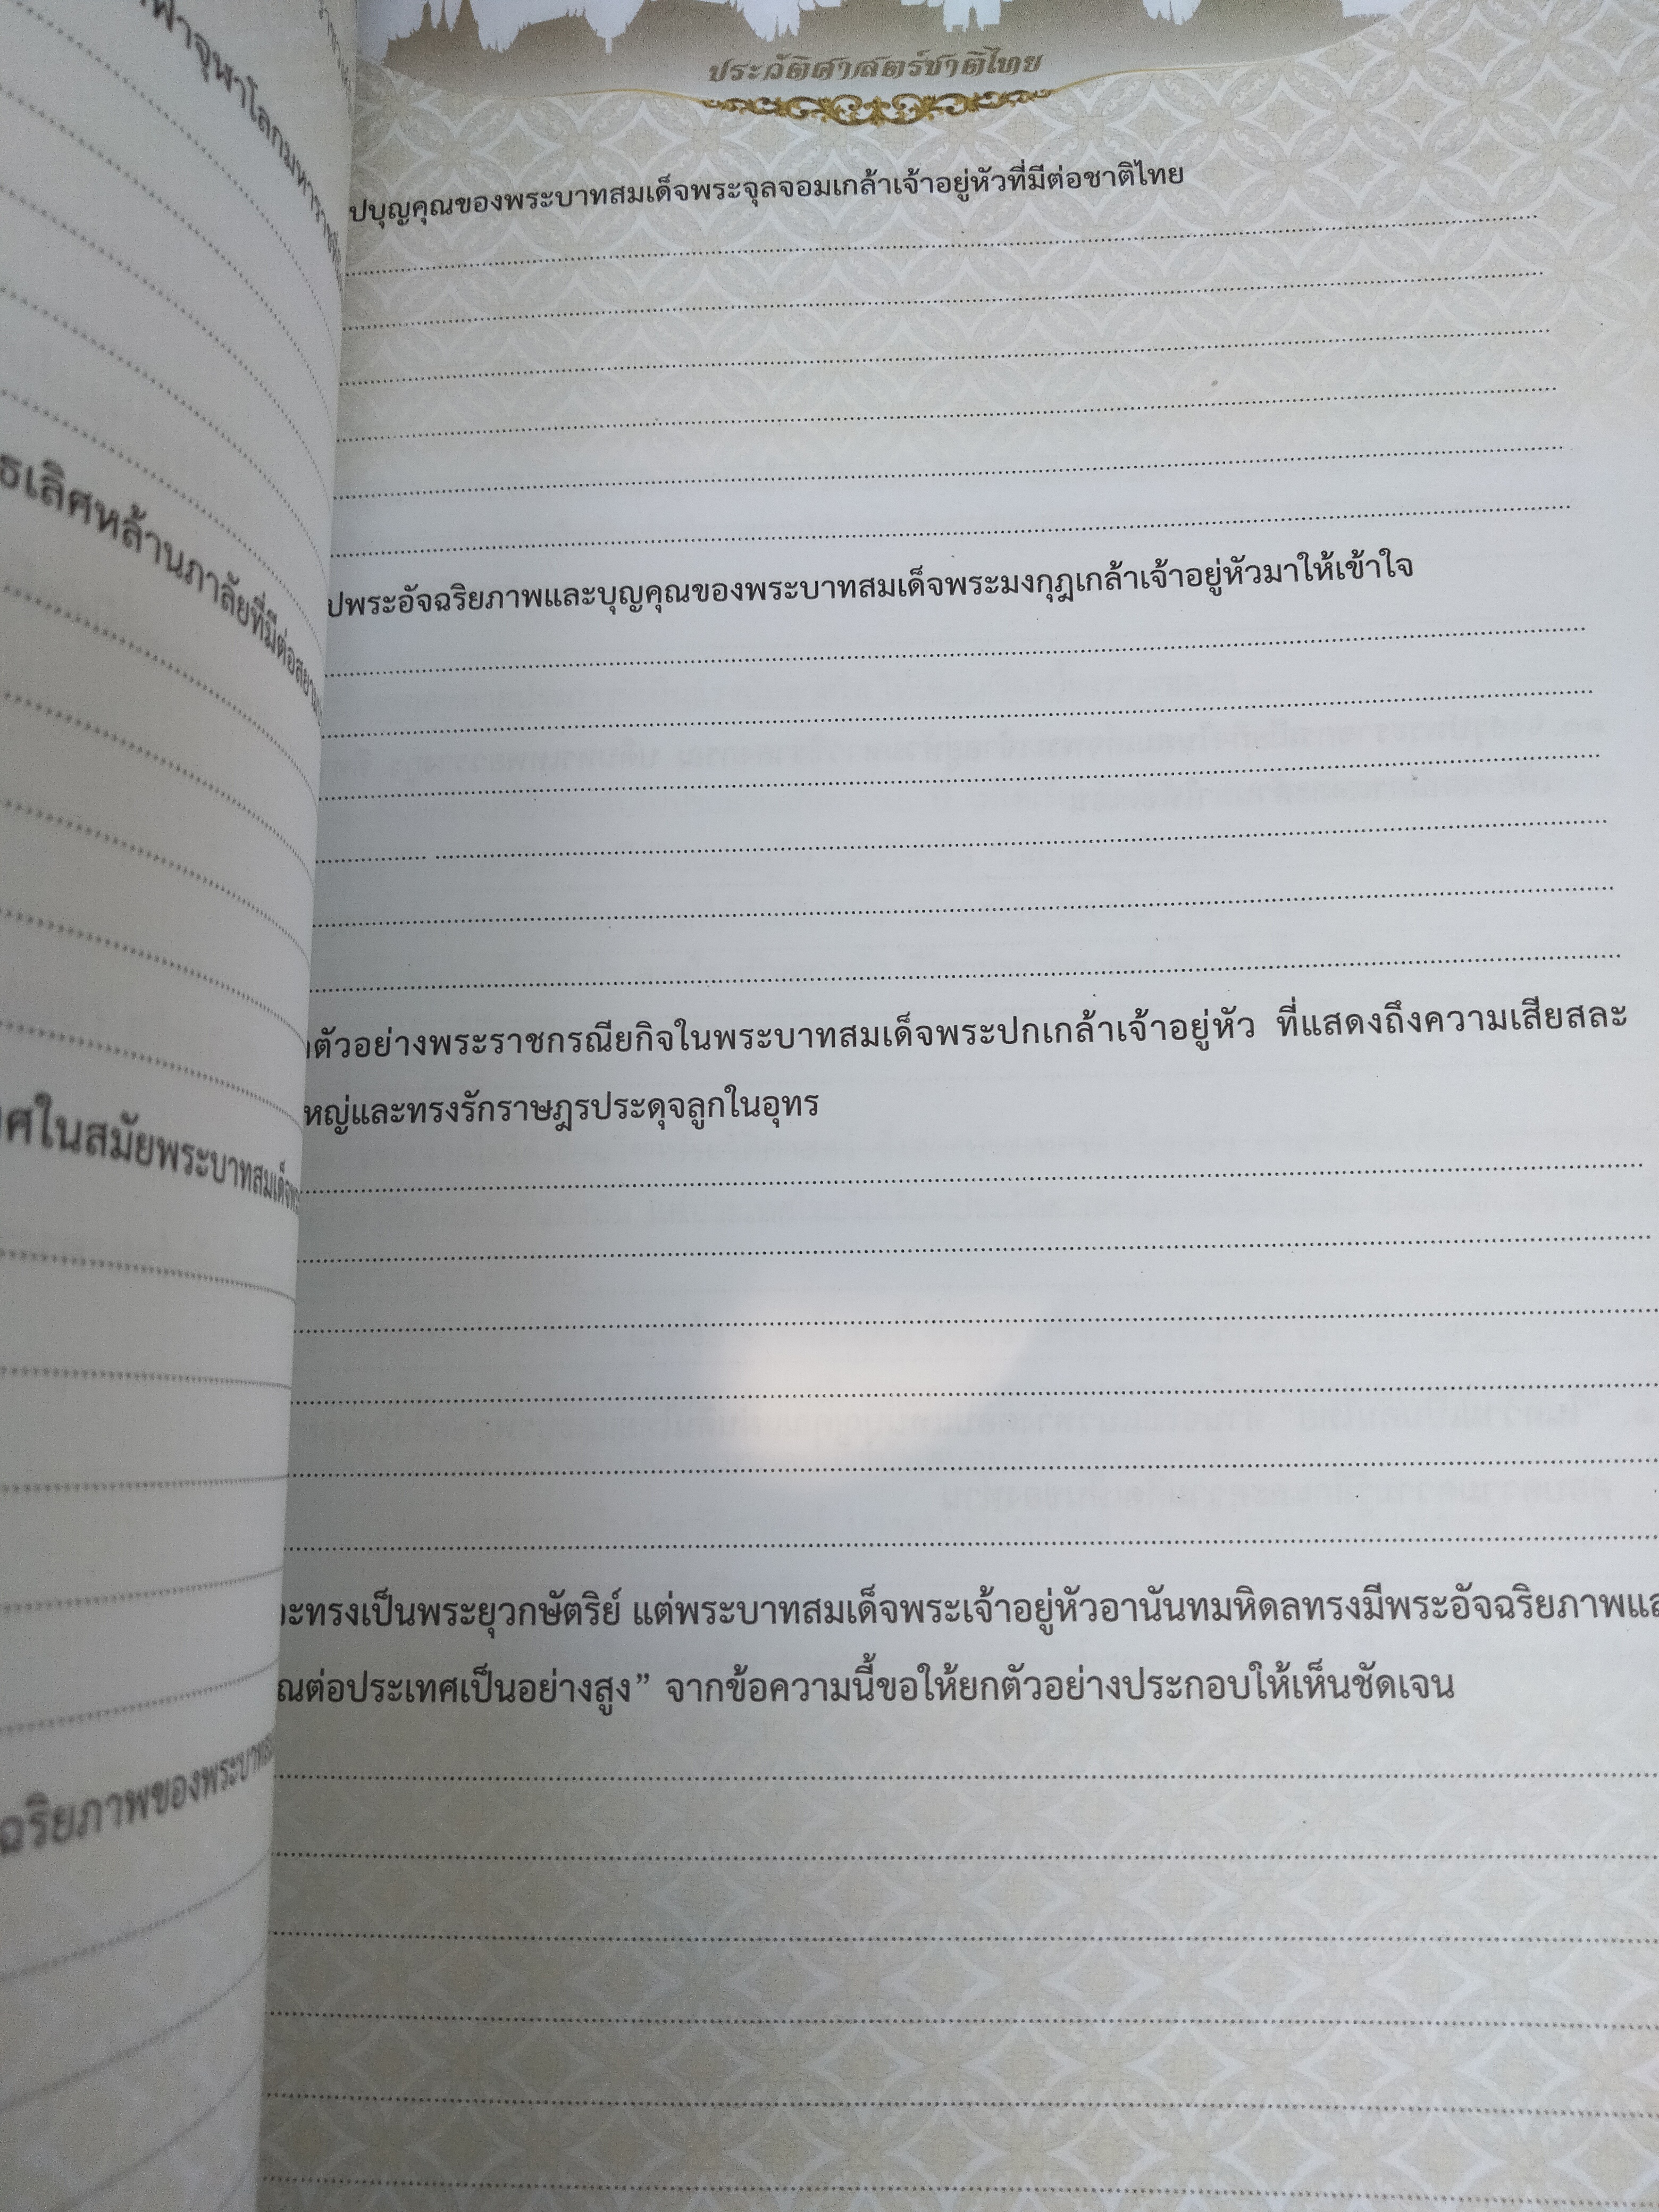 ฟ้าจุฬาโลกมหาราชที่
เลิศหล้านภาลัยที่มีต่อสยาม
ศในสมัยพระบาทสมเด็จพระ
ฉริยภาพของพระบาท
ประวัติศาสตร์ชาติไทย
ปบุญคุณของพระบาทสมเด็จพระจุลจอมเกล้าเจ้าอยู่หัวที่มีต่อชาติไทย
ปพระอัจฉริยภาพและบุญคุณของพระบาทสมเด็จพระมงกุฎเกล้าเจ้าอยู่หัวมาให้เข้าใจ
ตัวอย่างพระราชกรณียกิจในพระบาทสมเด็จพระปกเกล้าเจ้าอยู่หัว ที่แสดงถึงความเสียสละ
หญ่และทรงรักราษฎรประดุจลูกในอุทร
ะทรงเป็นพระยุวกษัตริย์ แต่พระบาทสมเด็จพระเจ้าอยู่หัวอานันทมหิดลทรงมีพระอัจฉริยภาพแล
ณต่อประเทศเป็นอย่างสูง” จากข้อความนี้ขอให้ยกตัวอย่างประกอบให้เห็นชัดเจน